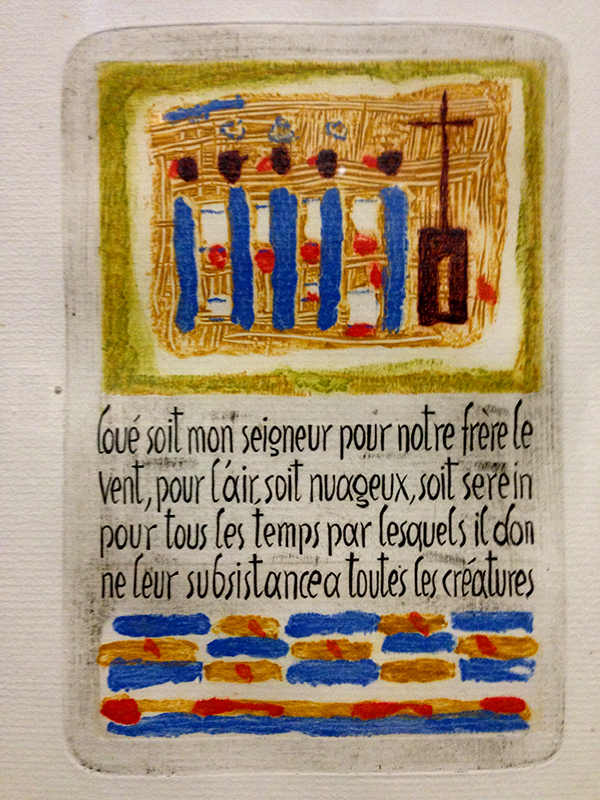 loué soit mon seigneur pour notre frère le
vent, pour l'air, soit nuageux, soit serein
pour tous les temps par lesquels il don
ne leur subsistance a toutes les créatures